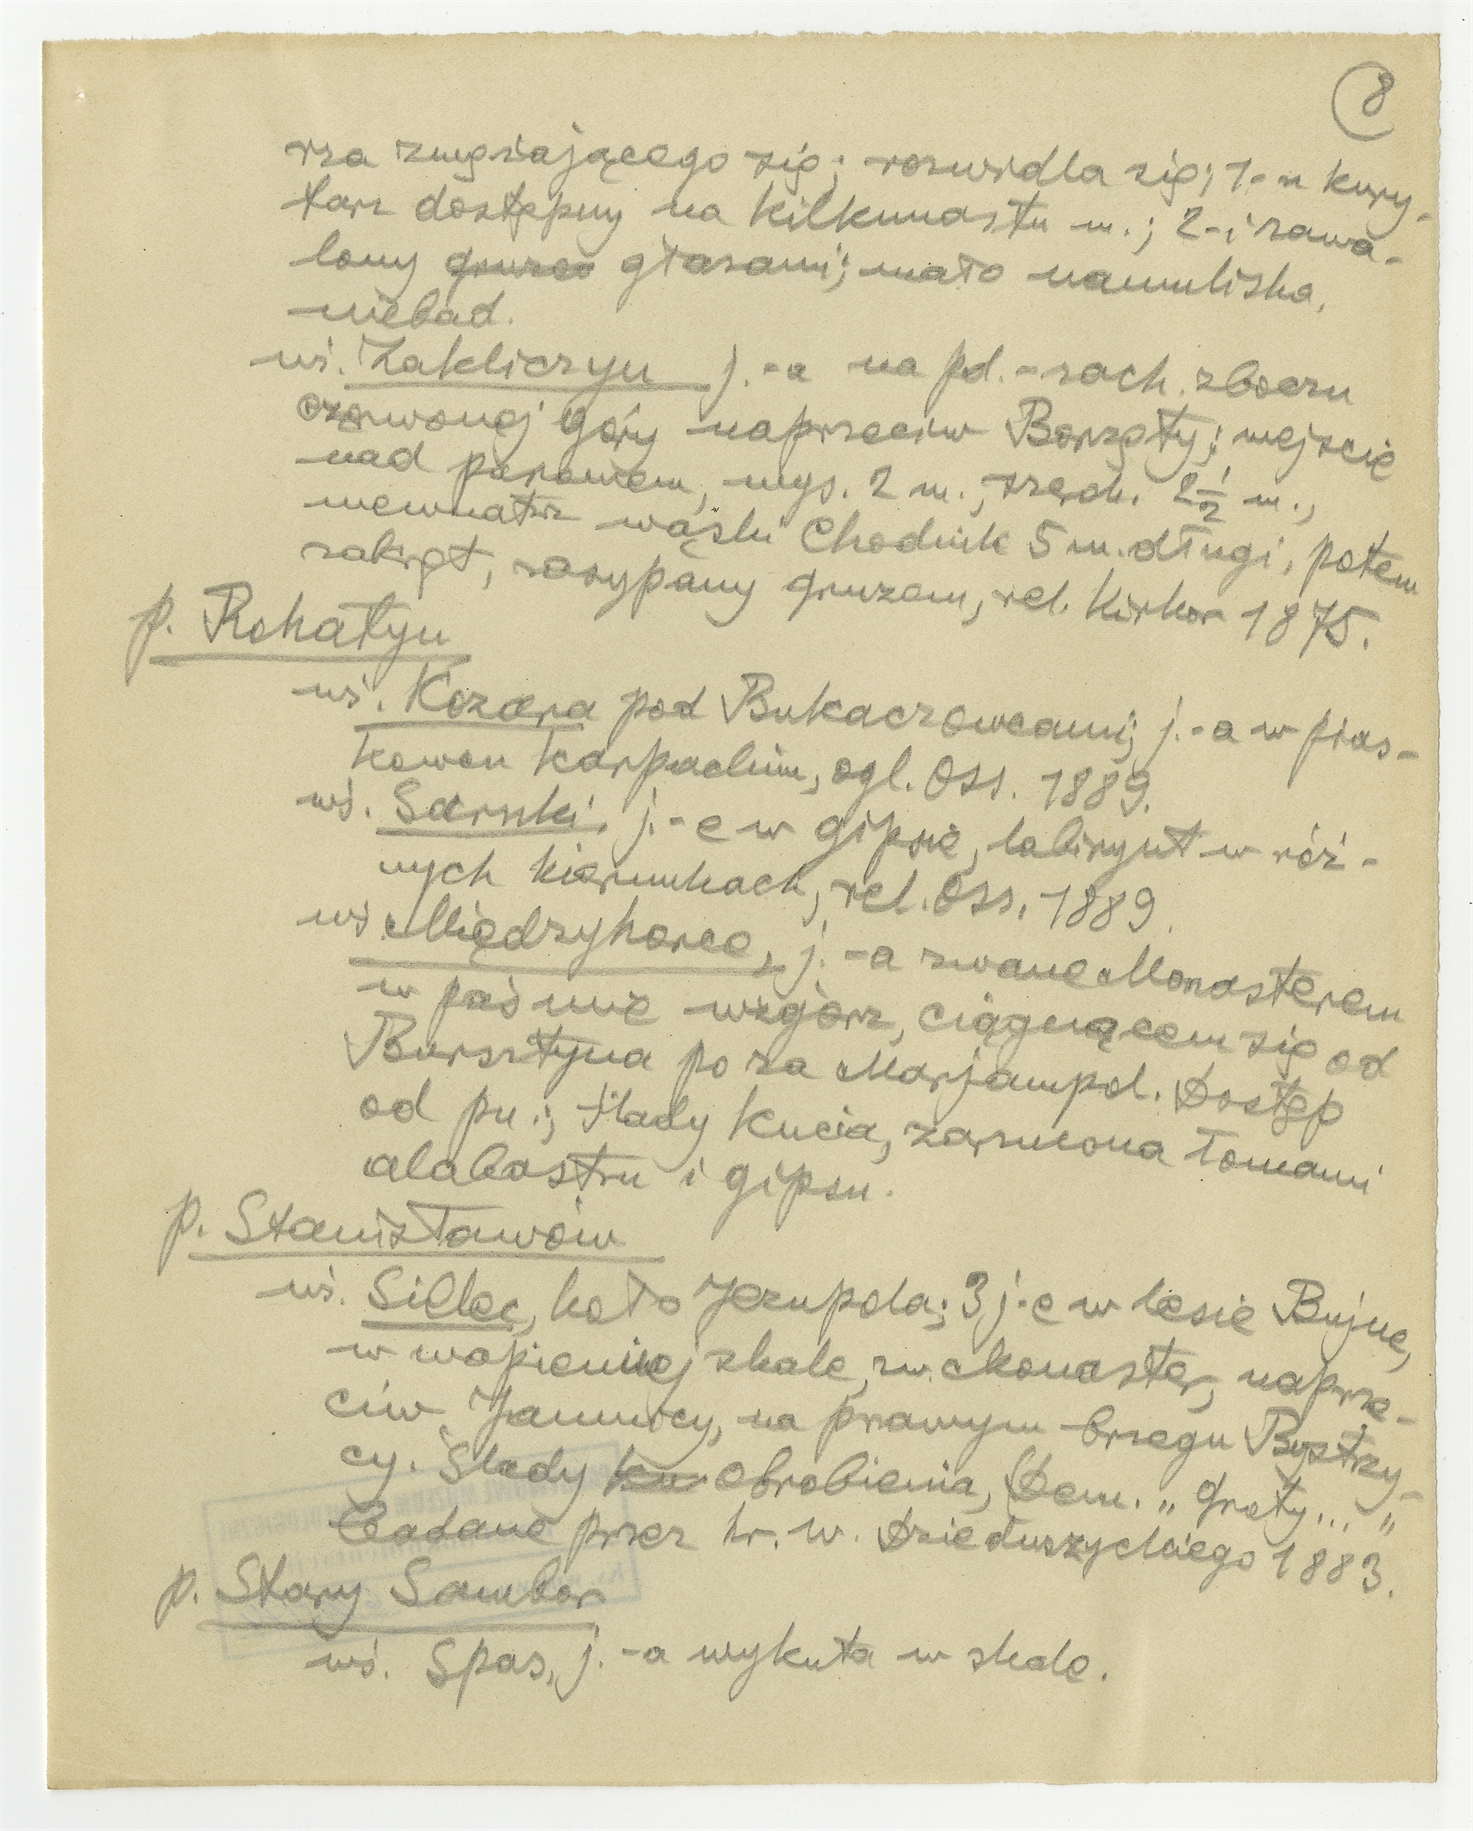 8
rza zwężającego się; rozwidla się; 1-n kury-
tarz dostępny na kilkunastu m.; 2-i zawa-
lony gruzo głazami; mało namuliska,
niebad.
wś. Zakliczyn j.-a na pd.-zach. zboczu
czerwonej góry naprzeciw Borzęty; wejście
nad parowem, wys. 2 m., szerok. 2½ m.,
wewnatrz wąski Chodnik 5 m. długi, potem
zakręt, zasypany gruzem, rel. Kirkor 1875.
p. Rohatyn
wś. Kozara pod Bukaczowcami; j.-a w pias-
kowcu karpackim, ogl. Oss. 1889.
wś. Sarnki, j.-e w gipsie, labirynt w róż-
nych kierunkach, rel. Oss. 1889.
wś. Międzyhorce, j.-a zwane Monasterem
w paśmie wzgórz, ciągnącem się od
Bursztyna po za Marjampol. Dostęp
od pn.; ślady kucia, zarzucona łomami
alabastru i gipsu.
p. Stanisławów
wś. Sielec, koło Jezupola; 3 j-e w lesie Bujne,
w wapiennej skale, zw. Monaster, naprze-
ciw Jamnicy, na prawym brzegu Bystrzy-
cy. Ślady ku obrobienia, Dem. „Groty..."
Badane przez hr. W. Dzieduszyckiego 1883.
p. Stary Sambor
wś. Spas, j.-a wykuta w skale.